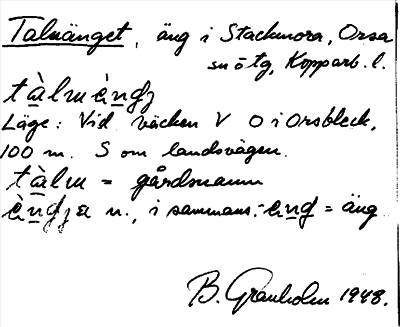 Talmänget, äng i Stackmora, Orsa
sn ö tg, Kopparb. l.
tàlmèŋgj
Läge: Vid bäcken V O i Orsbleck,
100 m. S om landsvägen.
tàlm = gårdsnamn
èŋgja n., i sammans.-eng = äng
B. Granholm 1948.